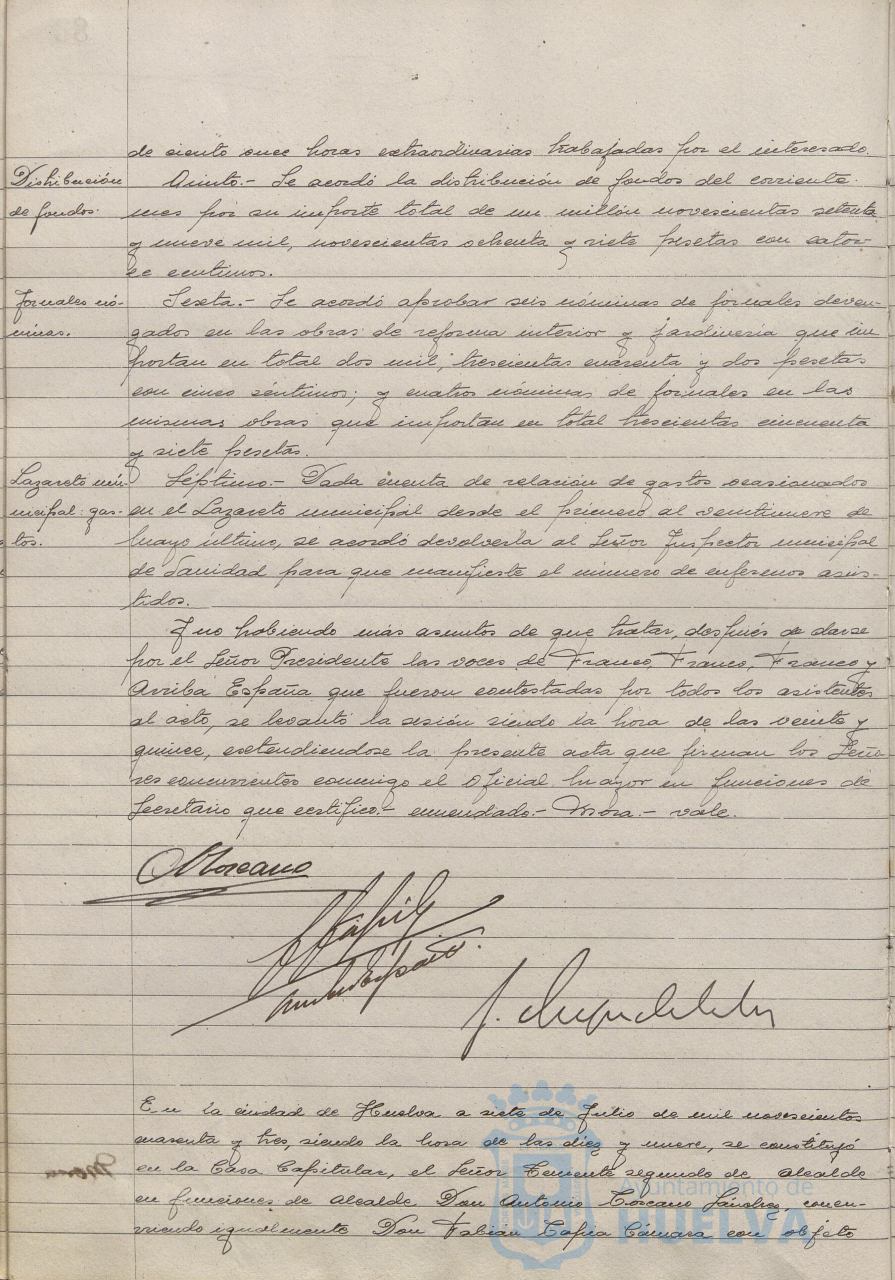 de ciento once horas extraordinarias trabajadas por el interesado.
Distribución
de fondos.
Quinto.- Se acordó la distribución de fondos del corriente
mes por su importe total de un millón novescientas setenta
y nueve mil, novescientas ochenta y siete pesetas con cator-
ce centimos.
Jornales nó-
minas.
Sesta.- Se acordó aprobar seis nóminas de jornales deven-
gados en las obras de reforma interior y jardinería que im
portan en total dos mil, trescientas cuarenta y dos pesetas
con cinco séntimos; y cuatro nóminas de jornales en las
mismas obras que importan en total trescientas cincuenta
y siete pesetas.
Lazareto mu-
nicipal: gas-
tos.
Séptimo.- Dada cuenta de relación de gastos ocasionados
en el Lazareto municipal desde el primero al veintinueve de
Mayo último, se acordó devolverla al Señor Inspector municipal
de Sanidad para que manifieste el número de enfermos asis-
tidos.
Y no habiendo más asuntos de que tratar, después de darse
por el Señor Presidente las voces de Franco, Franco, Franco y
Arriba España que fueron contestadas por todos los asistentes
al acto, se levantó la sesión siendo la hora de las veinte y
quince, extendiéndose la presente acta que firman los Seño
res concurrentes conmigo el Oficial Mayor en funciones de
Secretario que certifico.- enmendado.- Mora.- vale.
Toscano
En la ciudad de Huelva a siete de Julio de mil novescientos
cuarenta y tres, siendo la hora de las diez y nueve, se constituyó
en la Casa Capitular, el Señor Teniente segundo de Alcalde
en funciones de Alcalde Don Antonio Toscano Sánchez, concu-
rriendo igualmente Don Fabián Tapia Cámara con objeto
Ayuntamiento de
HUELVA